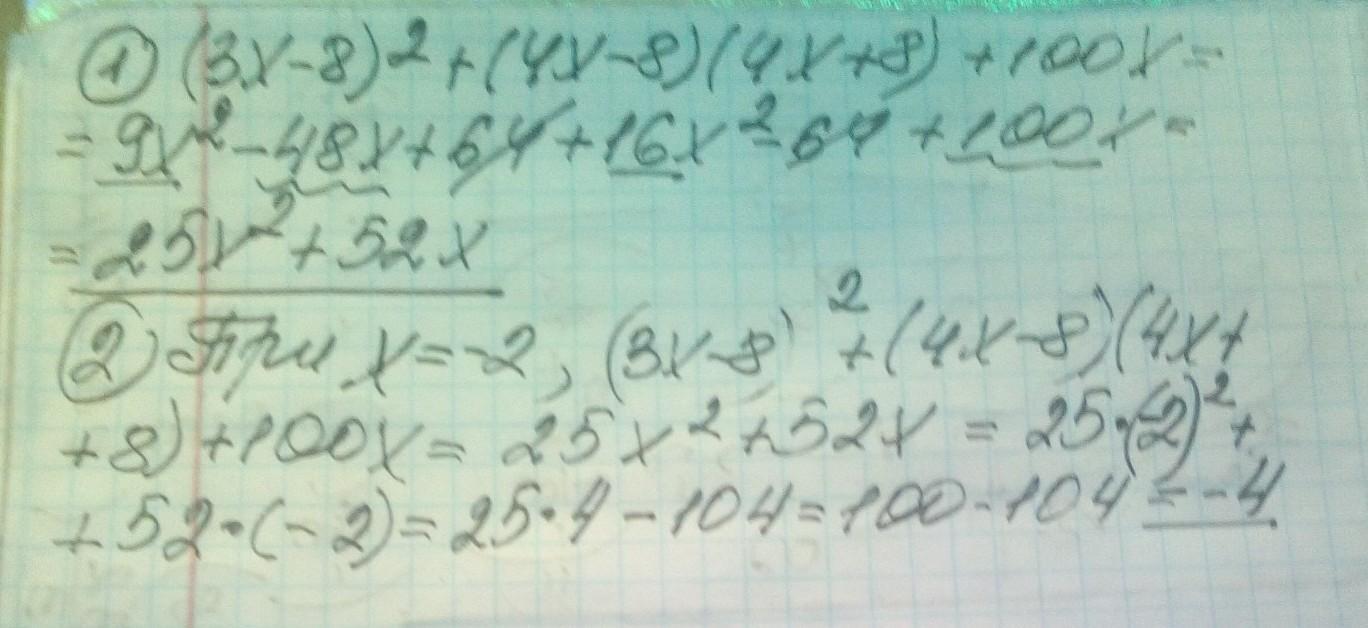 ① (3x-8)² + (4x-8)(4x+8) + 100x =
= 9x² - 48x + 64 + 16x² - 64 + 100x =
= 25x² + 52x
② При x = -2, (3x-8)² + (4x-8)(4x+
+8) + 100x = 25x² + 52x = 25·(-2)² +
+ 52·(-2) = 25·4 - 104 = 100 - 104 = -4